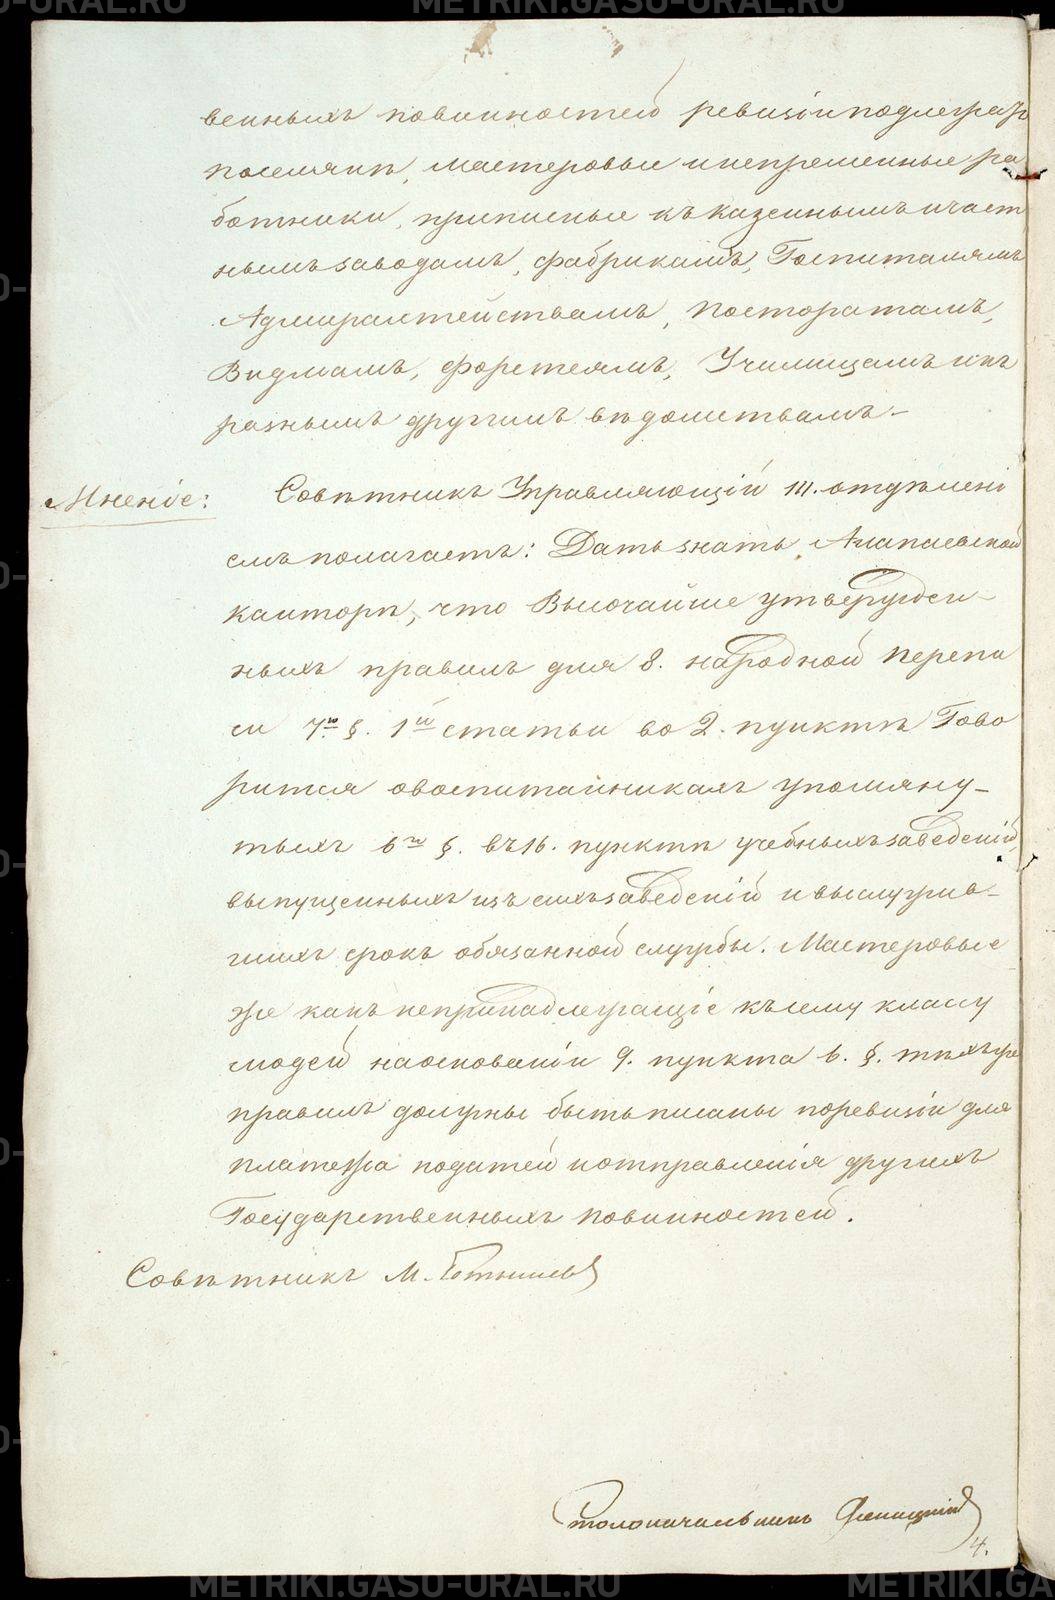 METRIKI.GASU-URAL.RU
METRIKI.GA
венныхъ повинностей ревизіи подлежатъ
поселяне, мастеровые и непременные ра
ботники, приписные къ казеннымъ и част
нымъ заводамъ, фабрикамъ, Госпиталямъ
Адмиралтействамъ, Посторатамъ,
Видмамъ, форстеямъ, Училищамъ и къ
разнымъ другимъ вѣдомствамъ.-
Мненіе:
Совѣтникъ Управляющій III. отдѣлені
емъ полагаетъ: Дать знать Алапаевской
канторѣ, что Высочайше утвержден-
ныхъ правилъ для 8. народной перепи
си 7го §. 1й статьи во 2. пунктѣ Гово
рится о воспитанникахъ упомяну-
тыхъ 6го §. въ 16. пунктѣ учебныхъ заведеній,
выпущенныхъ изъ сихъ заведеній и выслужив-
шихъ срокъ обязанной службы. Мастеровые
же какъ не принадлежащіе къ сему классу
людей на основаніи 9. пункта 6. §. тѣхъ же
правилъ должны быть писаны по ревизіи для
платежа податей и отправленія другихъ
Государственныхъ повинностей.
Совѣтникъ М.
Столоначальникъ
4.
METRIKI.GASU-URAL.RU
METRIKI.GA